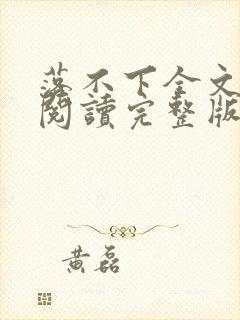 落不下全文
閱讀完整版
黄磊